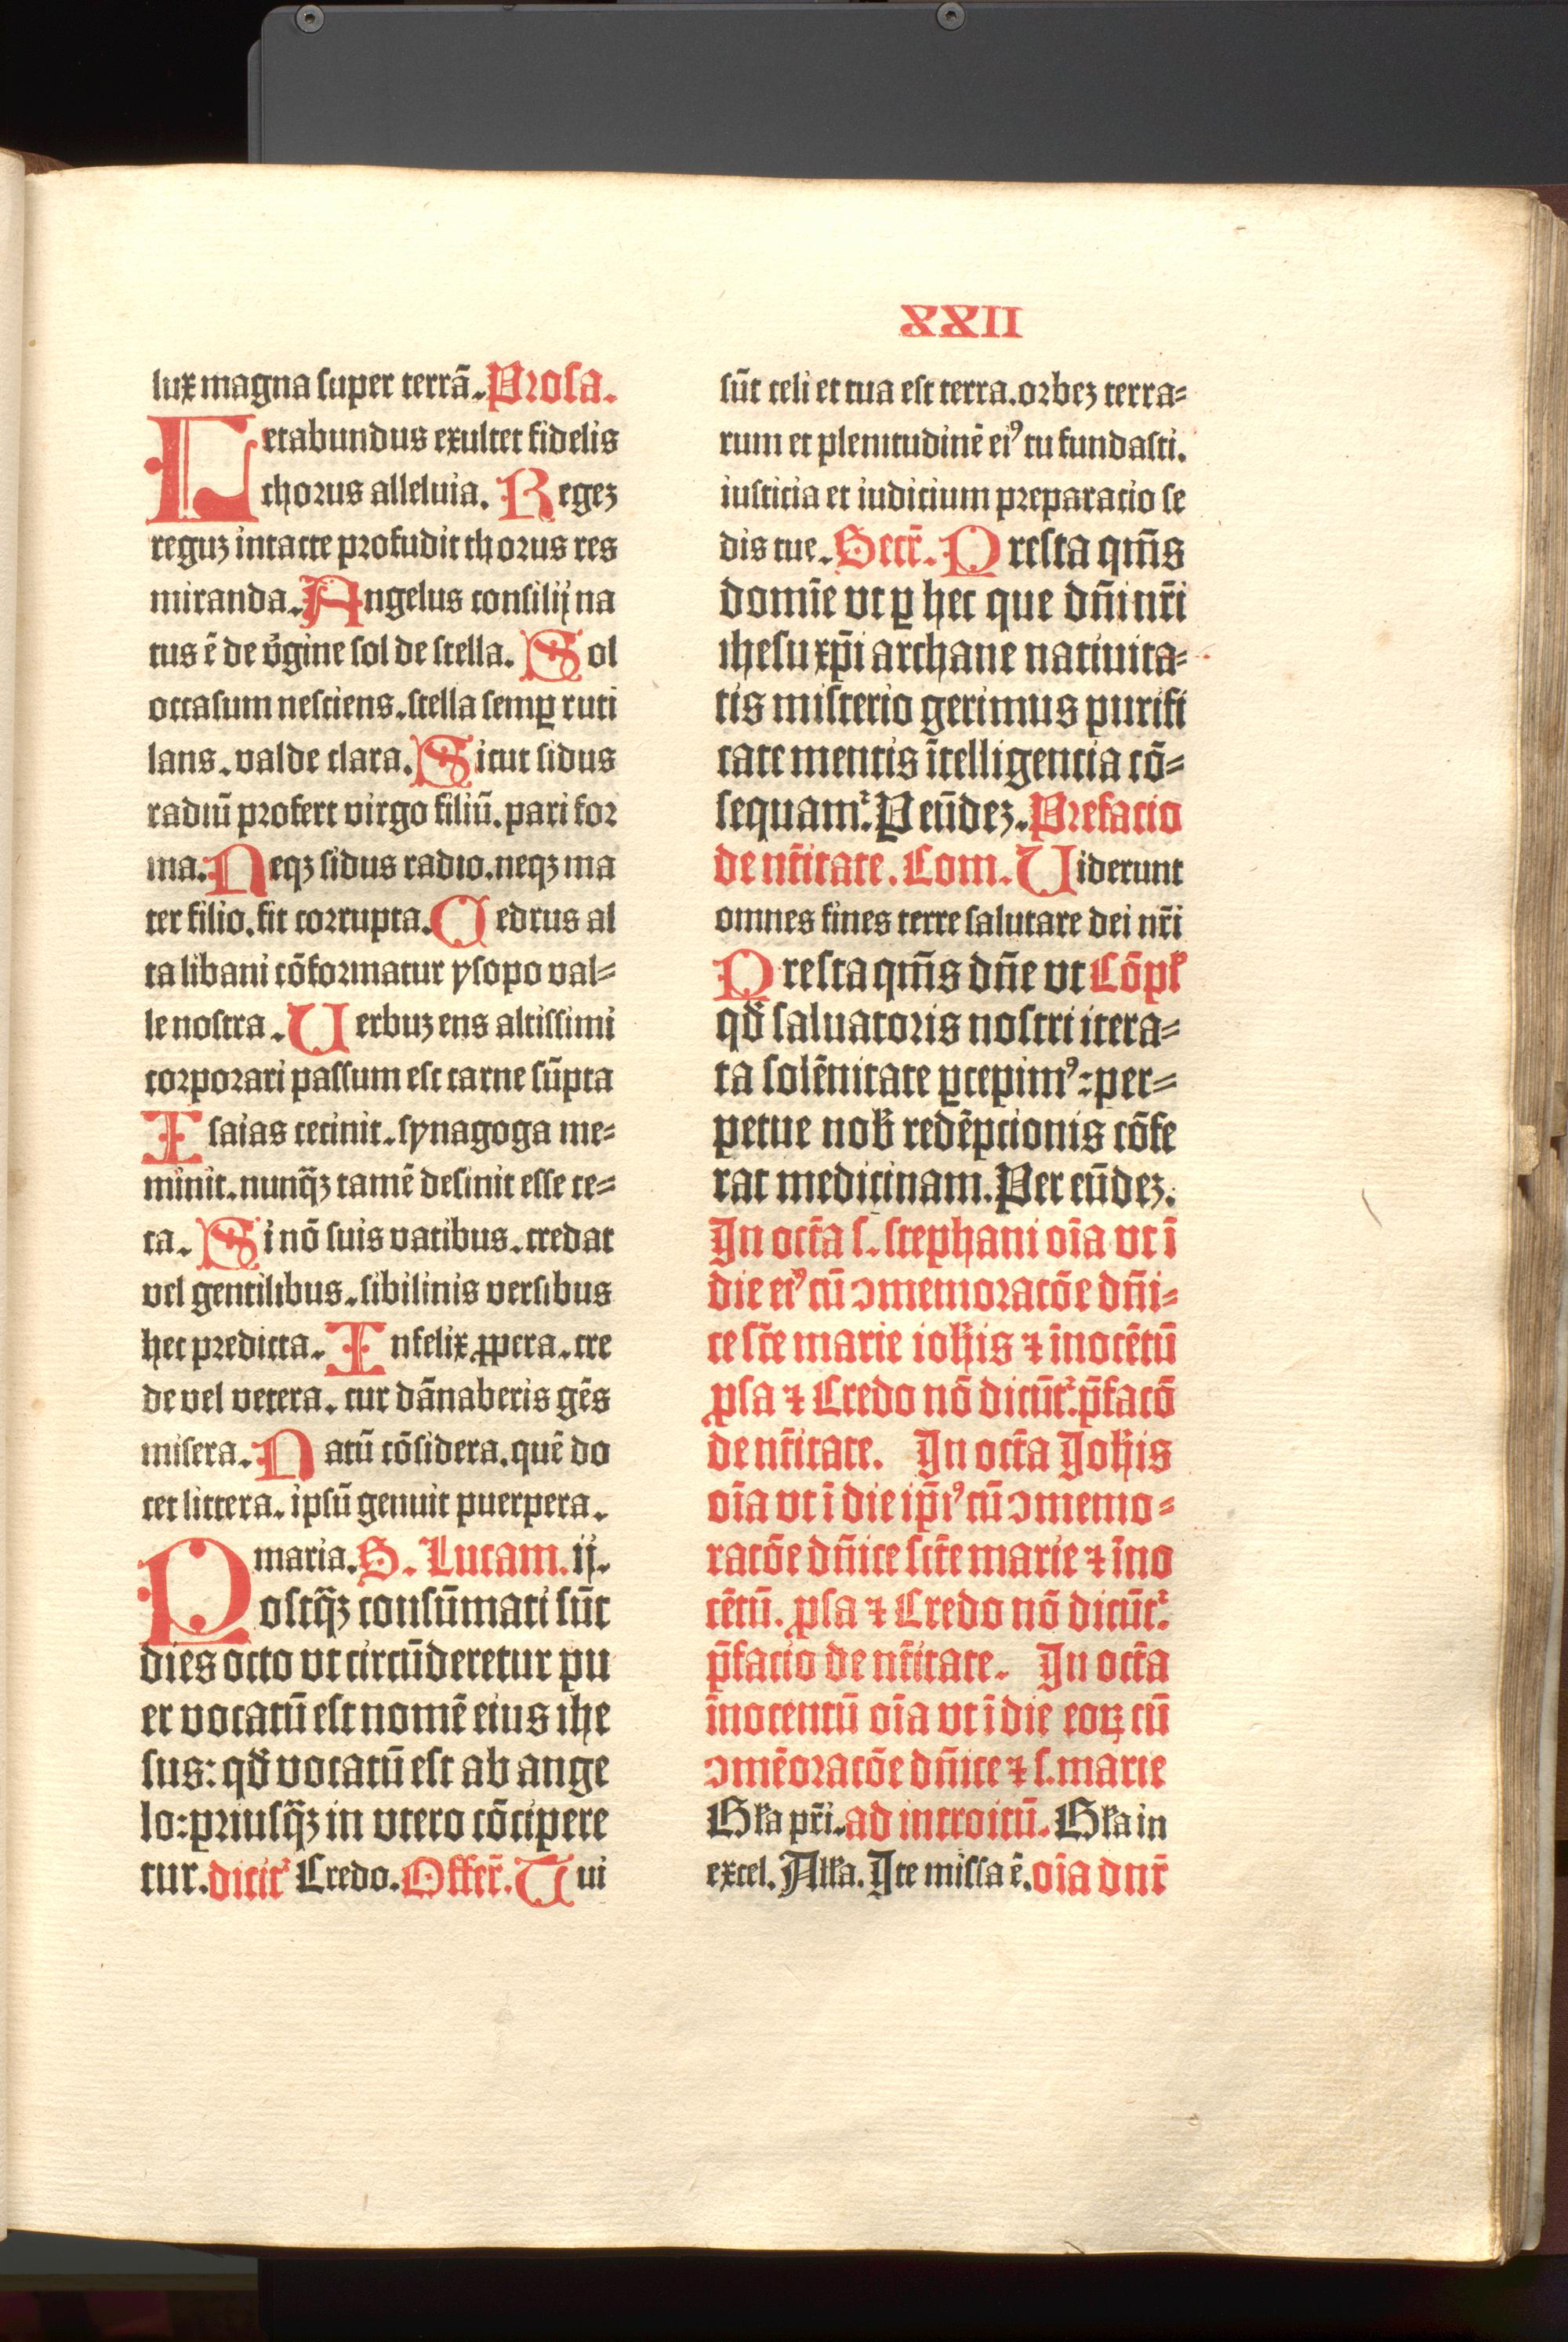 XXII
lux magna super terrã. Prosa.
Letabundus exultet fidelis
chorus alleluia. Regeꝫ
reguꝫ intacte profudit thorus res
miranda. Angelus consilij na
tus ē de v̓gine sol de stella. Sol
occasum nesciens. stella semꝑ ruti
lans. valde clara. Sicut sidus
radiū profert virgo filiū. pari for
ma. Neqꝫ sidus radio. neqꝫ ma
ter filio. fit corrupta. Cedrus al
ta libani cōformatur ysopo val⸗
le nostra. Uerbuꝫ ens altissimi
corporari passum est carne sūpta
Isaias cecinit. synagoga me⸗
minit. nunq̄ꝫ tamē desinit esse ce⸗
ca. Si nō suis vatibus. credat
vel gentilibus. sibilinis versibus
hec predicta. Infelix ꝓpera. cre
de vel vetera. cur dānaberis gēs
misera. Natū cōsidera. quē do
cet littera. ipsū genuit puerpera.
maria. S. Lucam. ij.
Postq̄ꝫ consūmati sūt
dies octo vt circūderetur pu
er vocatū est nomē eius ihe
sus: qd̓ vocatū est ab ange
lo: priusq̄ꝫ in vtero cōcipere
tur. dicit᷑ Credo. Offer̄. Tui
sūt celi et tua est terra. orbeꝫ terra⸗
rum et plenitudinē eiꝰ tu fundasti.
iusticia et iudicium preparacio se
dis tue. Secr̄. Presta qm̄s
domīe vt ꝑ hec que dn̄i nr̄i
ihesu xp̄i archane natiuita⸗
tis misterio gerimus purifi
cate mentis ītelligencia cō⸗
sequam᷑. P eūdeꝫ. Prefacio
de nt̄itate. Com. Uiderunt
omnes fines terre salutare dei nr̄i
Presta qm̄s dn̄e vt Cōpl̓
qd̓ saluatoris nostri itera⸗
ta solēnitate ꝑcepimꝰ: per⸗
petue nob̓ redēpcionis cōfe
rat medicinam. Per eūdeꝫ.
In oct̄a s. stephani oīa vt ī
die eiꝰ cū ↄmemoracōe dn̄i⸗
ce sc̄te marie ioh̄is ⁊ īnocētū
ꝓsa ⁊ Credo nō dicūt᷑. p̄facō
de nt̄itate. In oct̄a Joh̄is
oīa vt ī die ip̄iꝰ cū ↄmemo⸗
racōe dn̄ice sct̄e marie ⁊ īno
cētū. ꝓsa ⁊ Credo nō dicūt᷑.
p̄facio de nt̄itate. In oct̄a
īnocentū oīa vt ī die eoꝝ cū
ↄmēoracōe dn̄ice ⁊ s. marie
Gl̓a pr̄i. ad introitū. Gl̓a in
excel. All̓a. Ite missa ē. oīa dn̄r